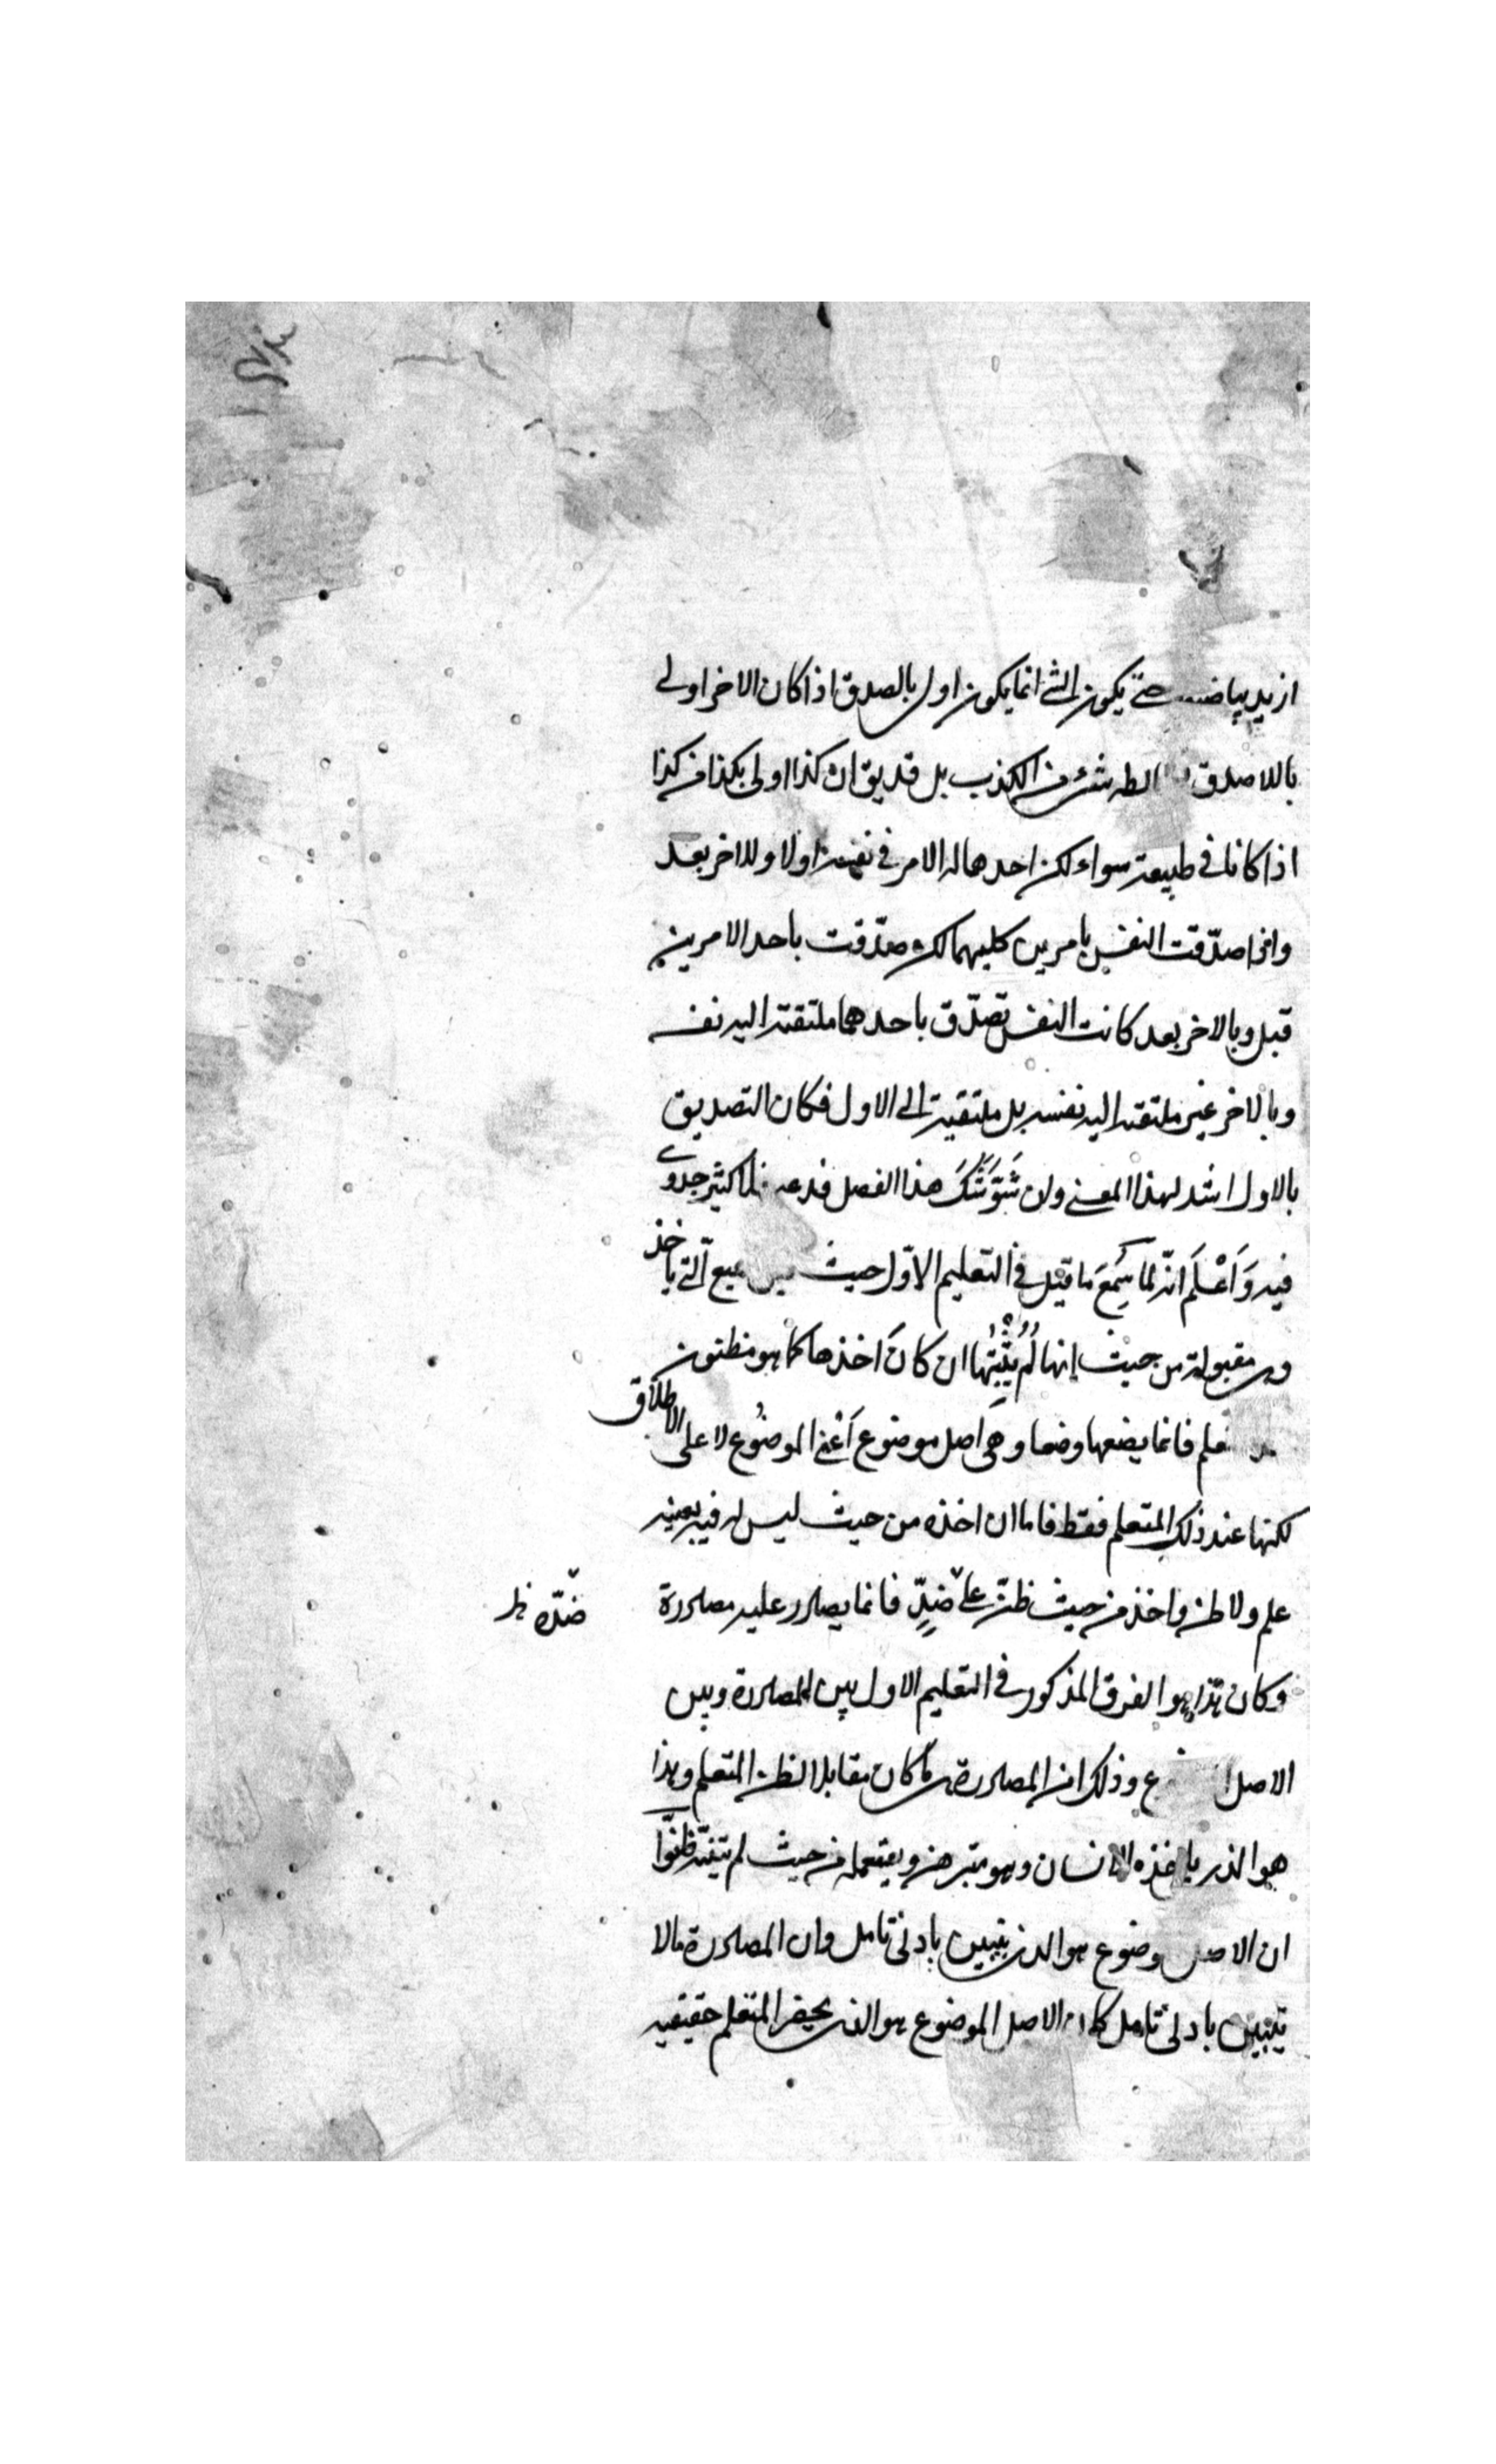 ازيد بياضا حتى يكون الشئ انما يكون اولى بالصدق اذا كان الاخر اولى
باللاصدق شئ من الكذب بل قد يق ان كذا اولى بكذا من كذا
اذا كانا فى طبيعته سواء لكن احدهما له الامر فى نفسه اولا وللاخر بعد
واذا صدّقت النفس بامرين كليهما لكن صدّقت باحد الامرين
قبل وبالاخر بعد كانت النفس تصدّق باحدهما ملتفتة اليه نفسه
وبالاخر غير ملتفتة اليه نفسه بل ملتفتة الى الاول فكان التصديق
بالاول اشد لهذا المعنى وان شوّشك هذا الفصل فدعه فما كثير جدوى
فيه وَاعْلَم انّه لما سمع ما قيل فى التعليم الاوّل حيث الّتى ياخذ
وهى مقبولة من حيث إنها لم يثبتها ان كان اخذها كما هو مظنون
علم فانما يضعها وضعا وهى اصل موضوع أعْنى الموضُوع لا على الاطلاق
لكنها عند ذلك المتعلم فقط فاما ان اخذه من حيث ليس له فيه بعينه
علم ولا ظن واخذ من حيث ظنّه على ضدّ فانما يصادر عليه مصادرة
ضدّه ظ
وكان هذا هو الفرق المذكور فى التعليم الاول بين المصادرة وبين
الاصل وذلك ان المصادرة ما كان مقابلا لظن المتعلم وهذا
هو الذى ياخذه الانسان وهو متبرهن ويستعمله من حيث لم يبيّنه ظنّوا
ان الاصل موضوع هو الذى يتبين بادنى تامل وان المصادرة ما لا
يتبين بادنى تامل كان الاصل الموضوع هو الذى يحضر المتعلم حقيقته